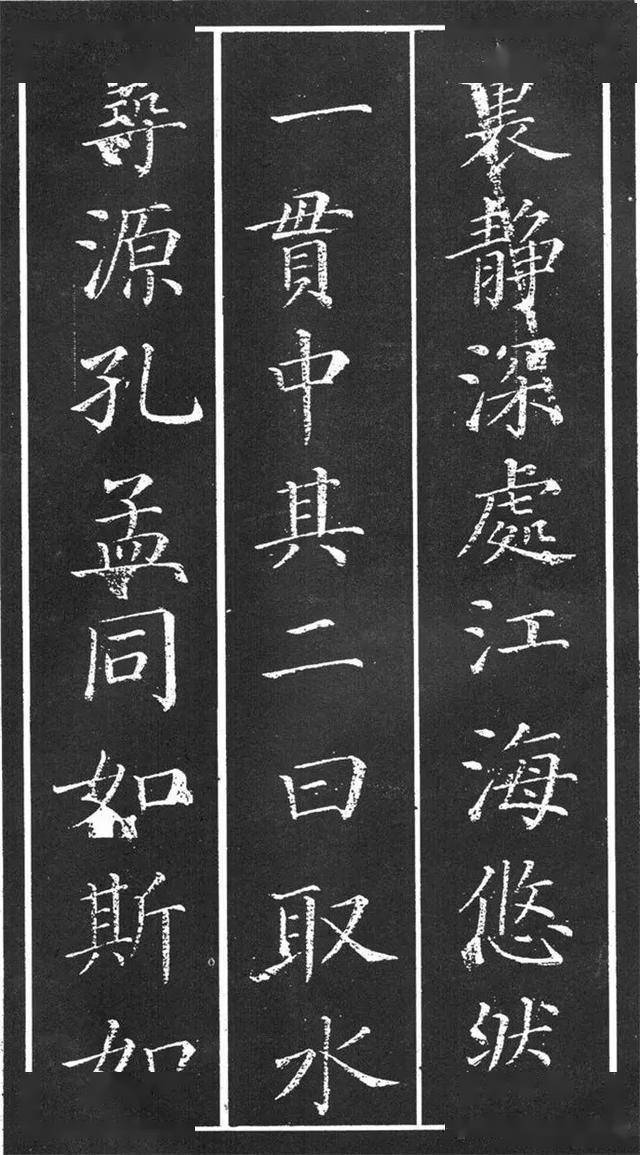 裏静深處江海悠然
一貫中其二曰取水
尋源孔孟同如斯如